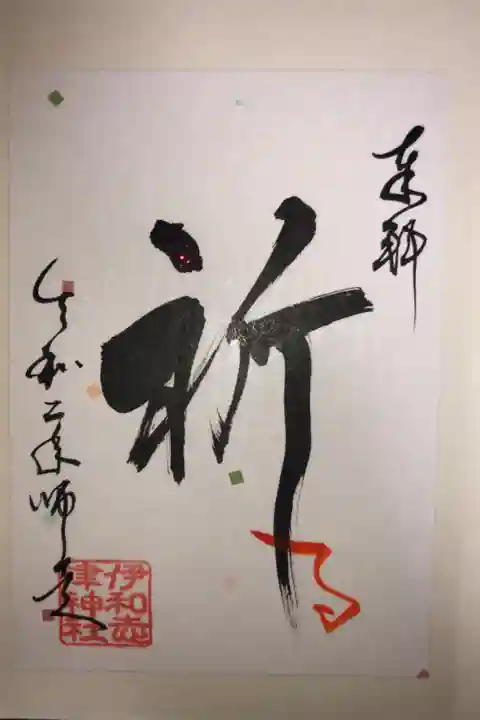 奉拝
祈る
令和二年師走
伊和志津神社